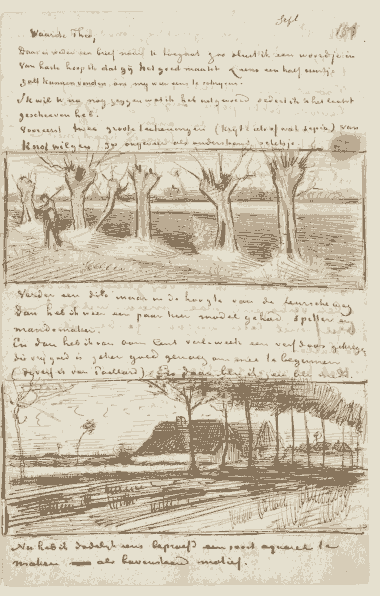 Sept
Waarde Theo,
Daar er reden een brief naar U toegaat zoo sluit ik een woordje in
Van harte hoop ik dat gij het goed maakt & eens een half uurtje
zult kunnen vinden om mij weer eens te schrijven.
Ik wil U nu nog zeggen wat ik heb uitgevoerd sedert ik U het laatst
geschreven heb.
Vooreerst twee groote teekeningen (krijt & iets of wat sepia) van
Knotwilgen zoo ongeveer als onderstaand schetsje.
Verder een dito maar in de hoogte van de Leursche weg
Dan heb ik weer een paar keer model gehad Spitter &
mandenmaker.
En dan heb ik van oom Cent verleden week een verfdoos gekregen
die vrij goed is zeker goed genoeg om mee te beginnen
(de verf is van Paillard) En daar ben ik zeer blij mede.
Nu heb ik dadelijk eens beproefd een soort aquarel te
maken — als bovenstaand motief.